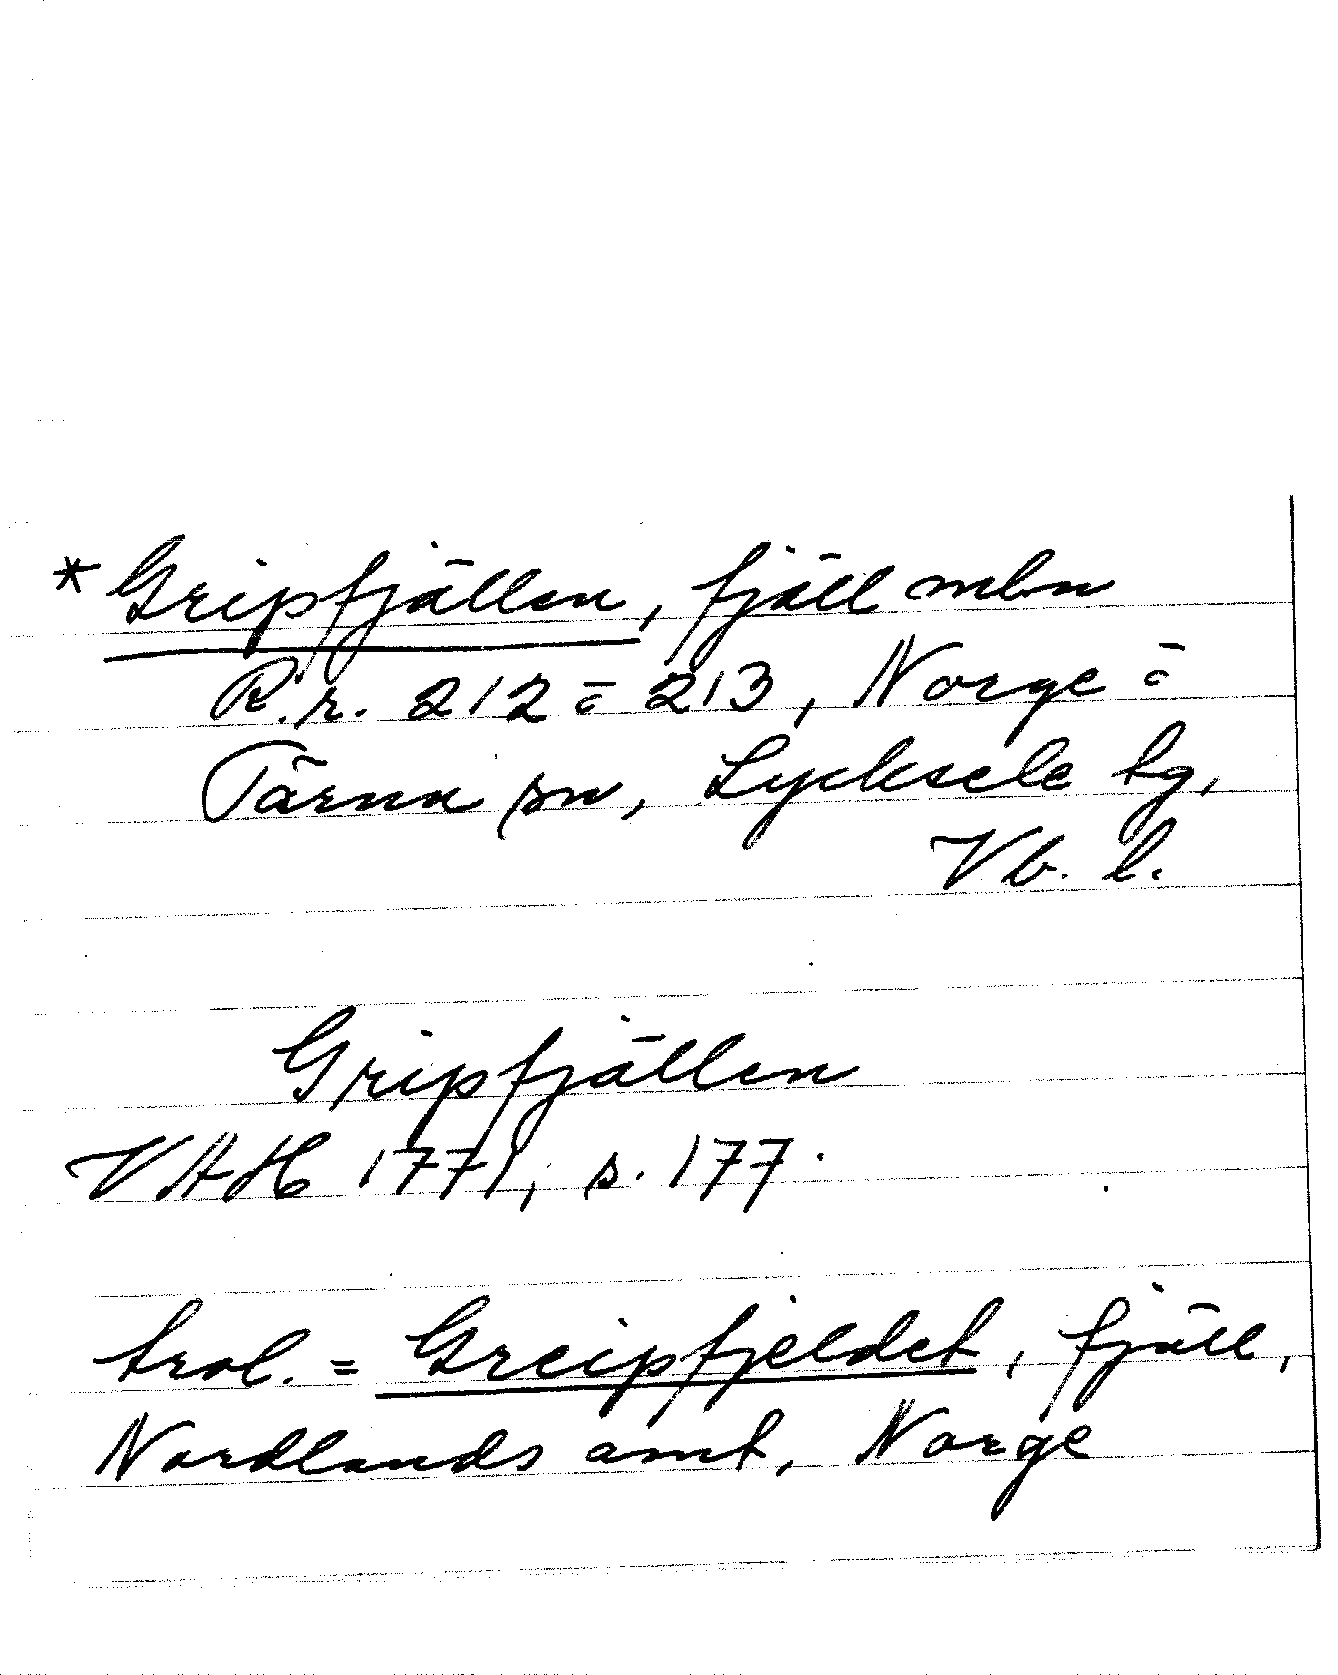 * Gripfjällen, fjäll mln
R.r. 212 = 213, Norge =
Tärna sn, Lycksele lg,
Vb. l.
Gripfjällen
VAH 1771, s. 177.
trol. = Greipfjeldet, fjäll,
Nordlands amt, Norge